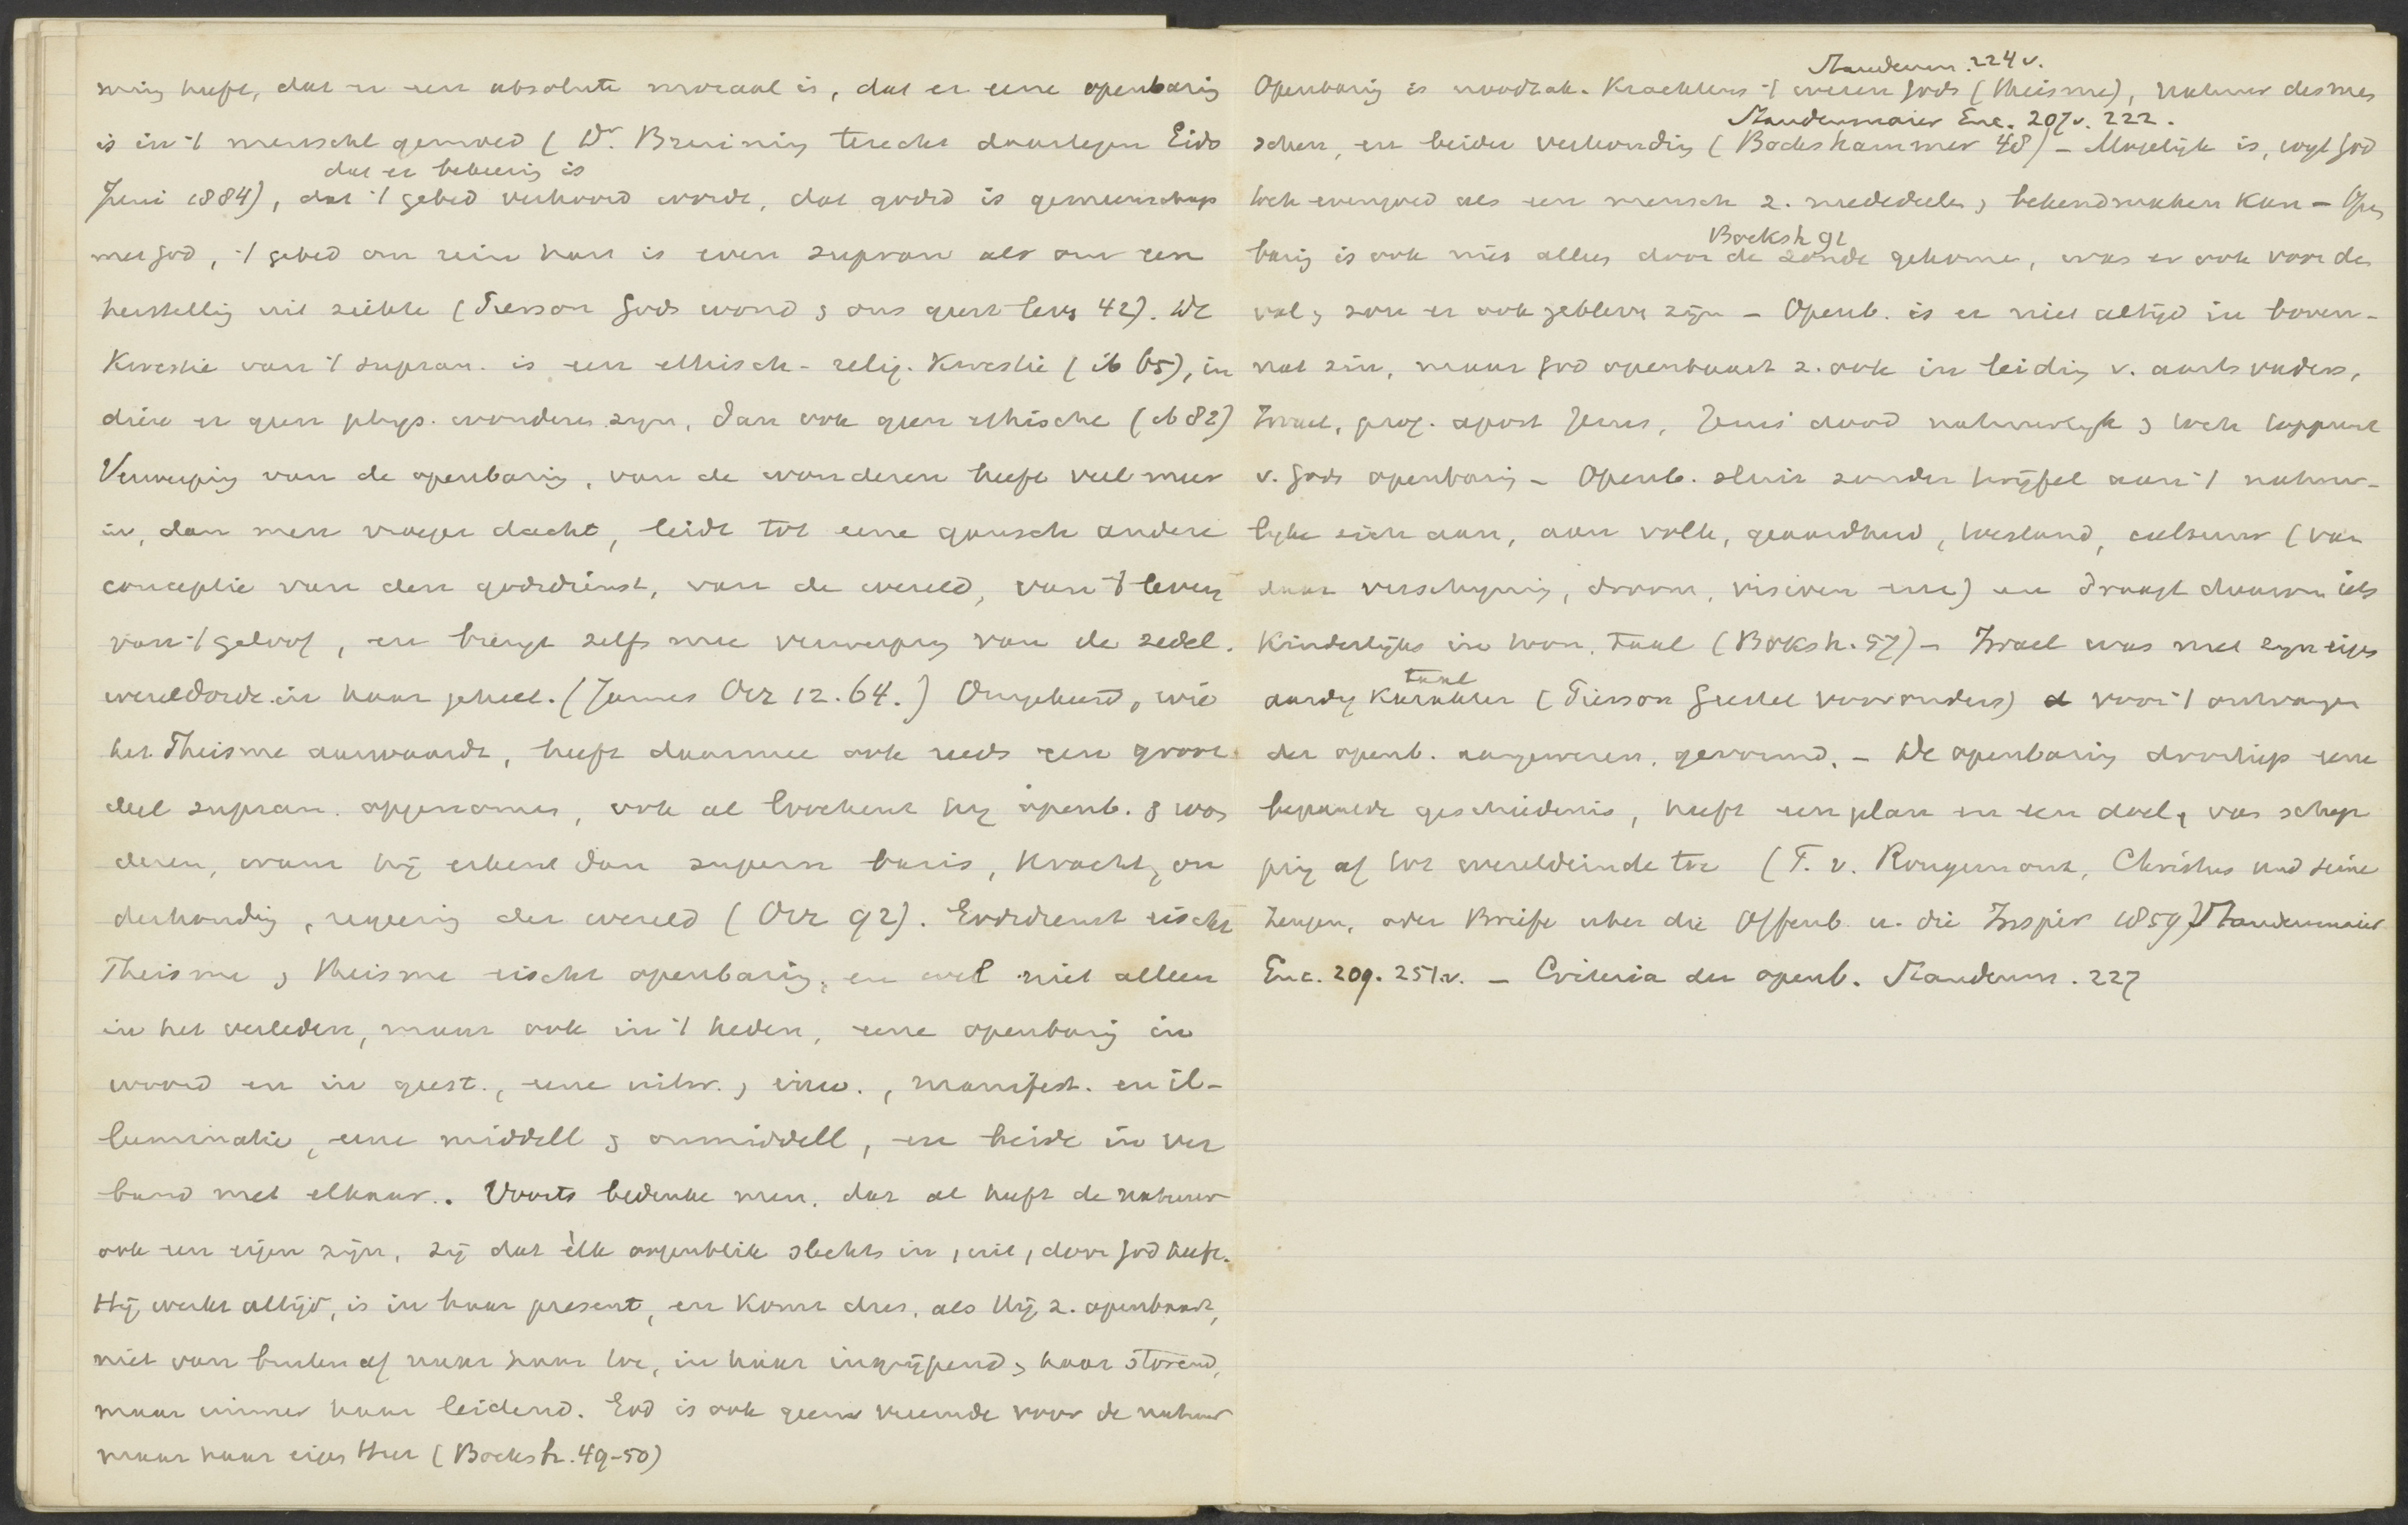 ming heeft, dat er een absolute moraal is, dat er eene openbaring
is in 't menschel gemoed (Dr. Bruining terecht daartegen Gids
dat er bekeering is
Juni 1884), dat 't gebed verhoord wordt, dat godsd is gemeenschap
met God, 't gebed om rein hart is even supran als om een
herstelling uit ziekte (Pierson Gods wond & ons geest lev 42). De
Kwestie van 't supran. is een ethisch-relig. Kwestie (ib 65), in
dien er geen phys. wonderen zijn, dan ook geen ethische (ib 82)
Verwerping van de openbaring, van de wonderen heeft veel meer
in, dan men vroeger dacht, leidt tot eene gansch andere
conceptie van den godsdienst, van de wereld, van 't leven
van 't geloof, en brengt zelfs mee verwerping van de zedel.
wereldorde in haar geheel. (James Orr 12. 64.) Omgekeerd, wie
het Theisme aanvaardt, heeft daarmee ook reeds een groot
deel supran. opgenomen, ook al loochent hij openb. & won
deren, want hij erkent dan supern basis, kracht, on
derhouding, regeering der wereld (Orr 92). Godsdienst eischt
Theisme, & theisme eischt openbaring, en wel niet alleen
in het verleden, maar ook in 't heden, eene openbaring in
woord en in geest., eene uitw. & inw., manifest. en il-
luminatie, eene middell & onmiddell, en beide in ver
band met elkaar. Voorts bedenke men, dat al heeft de natuur
ook een eigen zijn, zij dat èlk oogenblik slechts in, uit, door God heeft.
Hij werkt altijd, is in haar present, en komt dus, als Hij z. openbaart,
niet van buiten af naar haar toe, in haar ingrijpend, & haar storend,
maar immer haar leidend. God is ook geen vreemde voor de natuur
maar haar eigen Heer (Bocksh. 49-50)
Staudenm. 224 v.
Openbaring is noodzak. Krachtens 't wezen Gods (theisme), natuur des men
Staudenmaier Enc. 207 v. 222.
schen, en beider verhouding (Bockshammer 48) - Mogelijk is, wijl God
toch evengoed als een mensch z. mededeelen & bekendmaken kan - Open
Bocksh 91
baring is ook niet alleen door de zonde gekomen, was er ook voor den
val, & zou er ook gebleven zijn - Openb. is er niet altijd in boven-
nat zin, maar God openbaart z. ook in leiding v. aartsvaders,
Israel, prof. apost Jezus, Jezus' dood natuurlijk & toch toppunt
v. Gods openbaring - Openb. sluit zonder twijfel aan 't natuur-
lijke zich aan, aan volk, geaardheid, toestand, cultuur (van
daar verschijning, droom, visioen enz) en draagt daarom iets
Kinderlijks in won, taal (Boksh. 57) - Israel was met zijn eigen
taal
aardig karakter (Pierson Geestel voorouders) voor 't ontvangen
der openb. aangewezen, gevormd. - De openbaring doorliep eene
bepaalde geschiedenis, heeft een plan en een doel, van schep
ping af tot wereldeinde toe (F. v. Rougemont, Christus und seine
Zeugen, oder Briefe uber die Offenb. u. die Inspir 1859) Staudenmaier
Enc. 209. 251.v. - Criteria der openb. Staudenm. 227